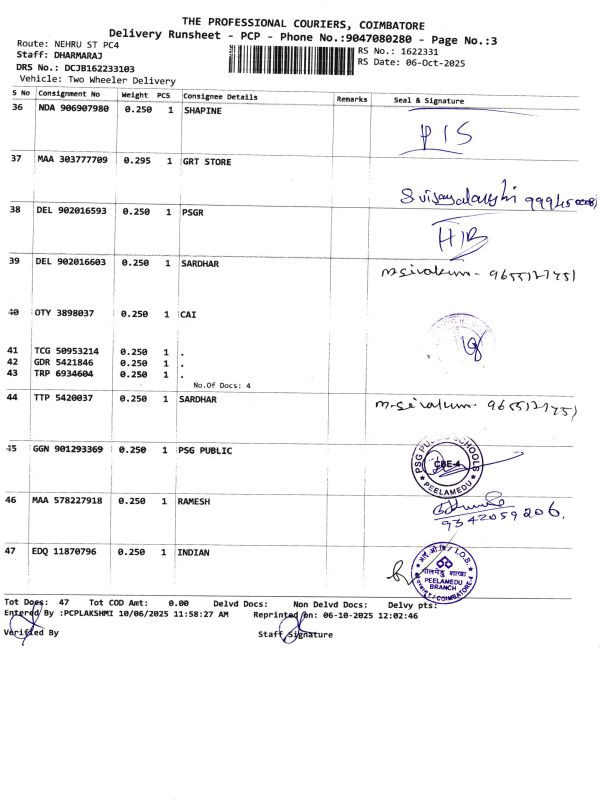 THE PROFESSIONAL COURIERS, COIMBATORE
Delivery Runsheet - PCP - Phone No.:9047080280 - Page No.:3
Route: NEHRU ST PC4
RS No.: 1622331
Staff: DHARMARAJ
RS Date: 06-Oct-2025
DRS No.: DCJB162233103
Vehicle: Two Wheeler Delivery
S No Consignment No Weight PCS Consignee Details Remarks Seal & Signature
36 NDA 906907980 0.250 1 SHAPINE
PIS
37 MAA 303777709 0.295 1 GRT STORE
38 DEL 902016593 0.250 1 PSGR
39 DEL 902016603 0.250 1 SARDHAR
40 OTY 3898037 0.250 1 CAI
41 TCG 50953214 0.250 1 .
42 GDR 5421846 0.250 1 .
43 TRP 6934604 0.250 1 .
No.Of Docs: 4
44 TTP 5420037 0.250 1 SARDHAR
45 GGN 901293369 0.250 1 PSG PUBLIC
PSG PUBLIC SCHOOLS
CBE-4
PEELAMEDU
46 MAA 578227918 0.250 1 RAMESH
9342059206.
47 EDQ 11870796 0.250 1 INDIAN
आई.ओ.बी / I.O.B.
पीलमेडु शाखा
PEELAMEDU
BRANCH
COIMBATORE-4
Tot Docs: 47 Tot COD Amt: 0.00 Delvd Docs: Non Delvd Docs: Delvy pts:
Entered By :PCPLAKSHMI 10/06/2025 11:58:27 AM Reprinted on: 06-10-2025 12:02:46
Verified By Staff Signature